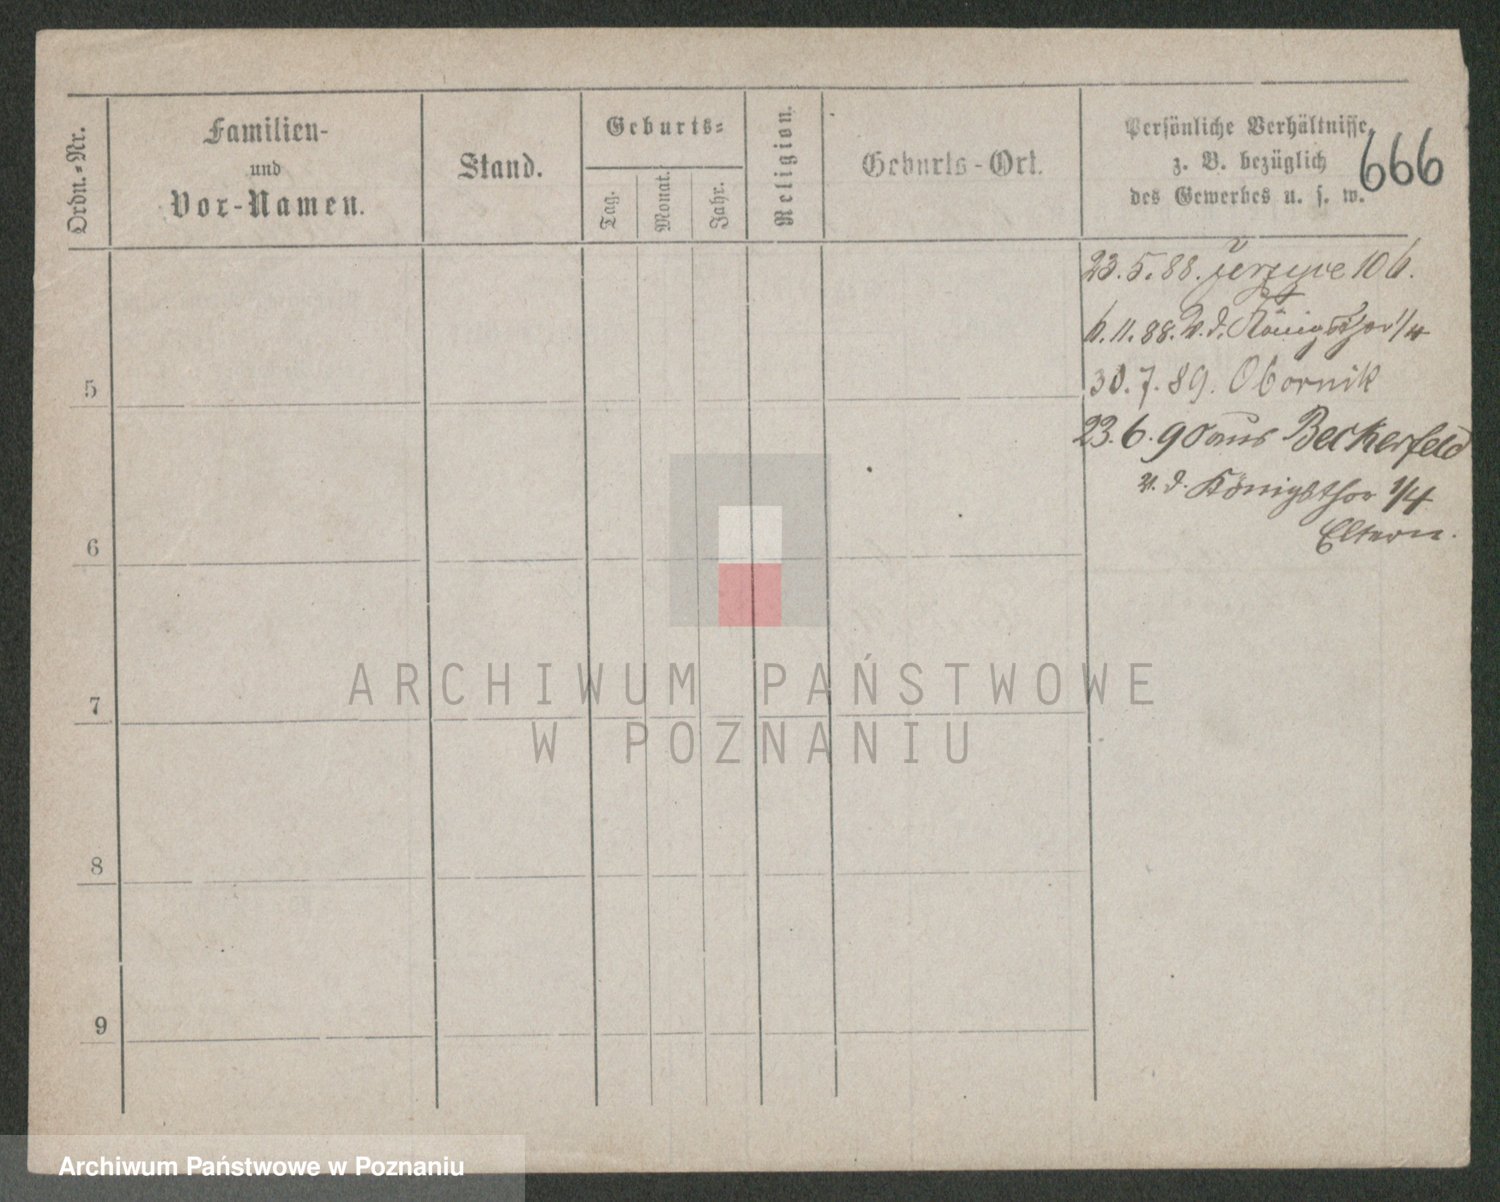 Ordn.-Nr.
Familien-
und
Vor-Namen.
Stand.
Geburts-
Tag.
Monat.
Jahr.
Religion.
Geburts-Ort.
Persönliche Verhältnisse,
z. B. bezüglich
des Gewerbes u. s. w.
666
23.5.88. Jersyce 10 b.
6.11.88. v. d. Königsthor 1/4
30.7.89. Obornik
23.6.90 aus Beckerfeld
v. d. Königsthor 1/4
Eltern.
5
6
7
8
9
ARCHIWUM PAŃSTWOWE
W POZNANIU
Archiwum Państwowe w Poznaniu